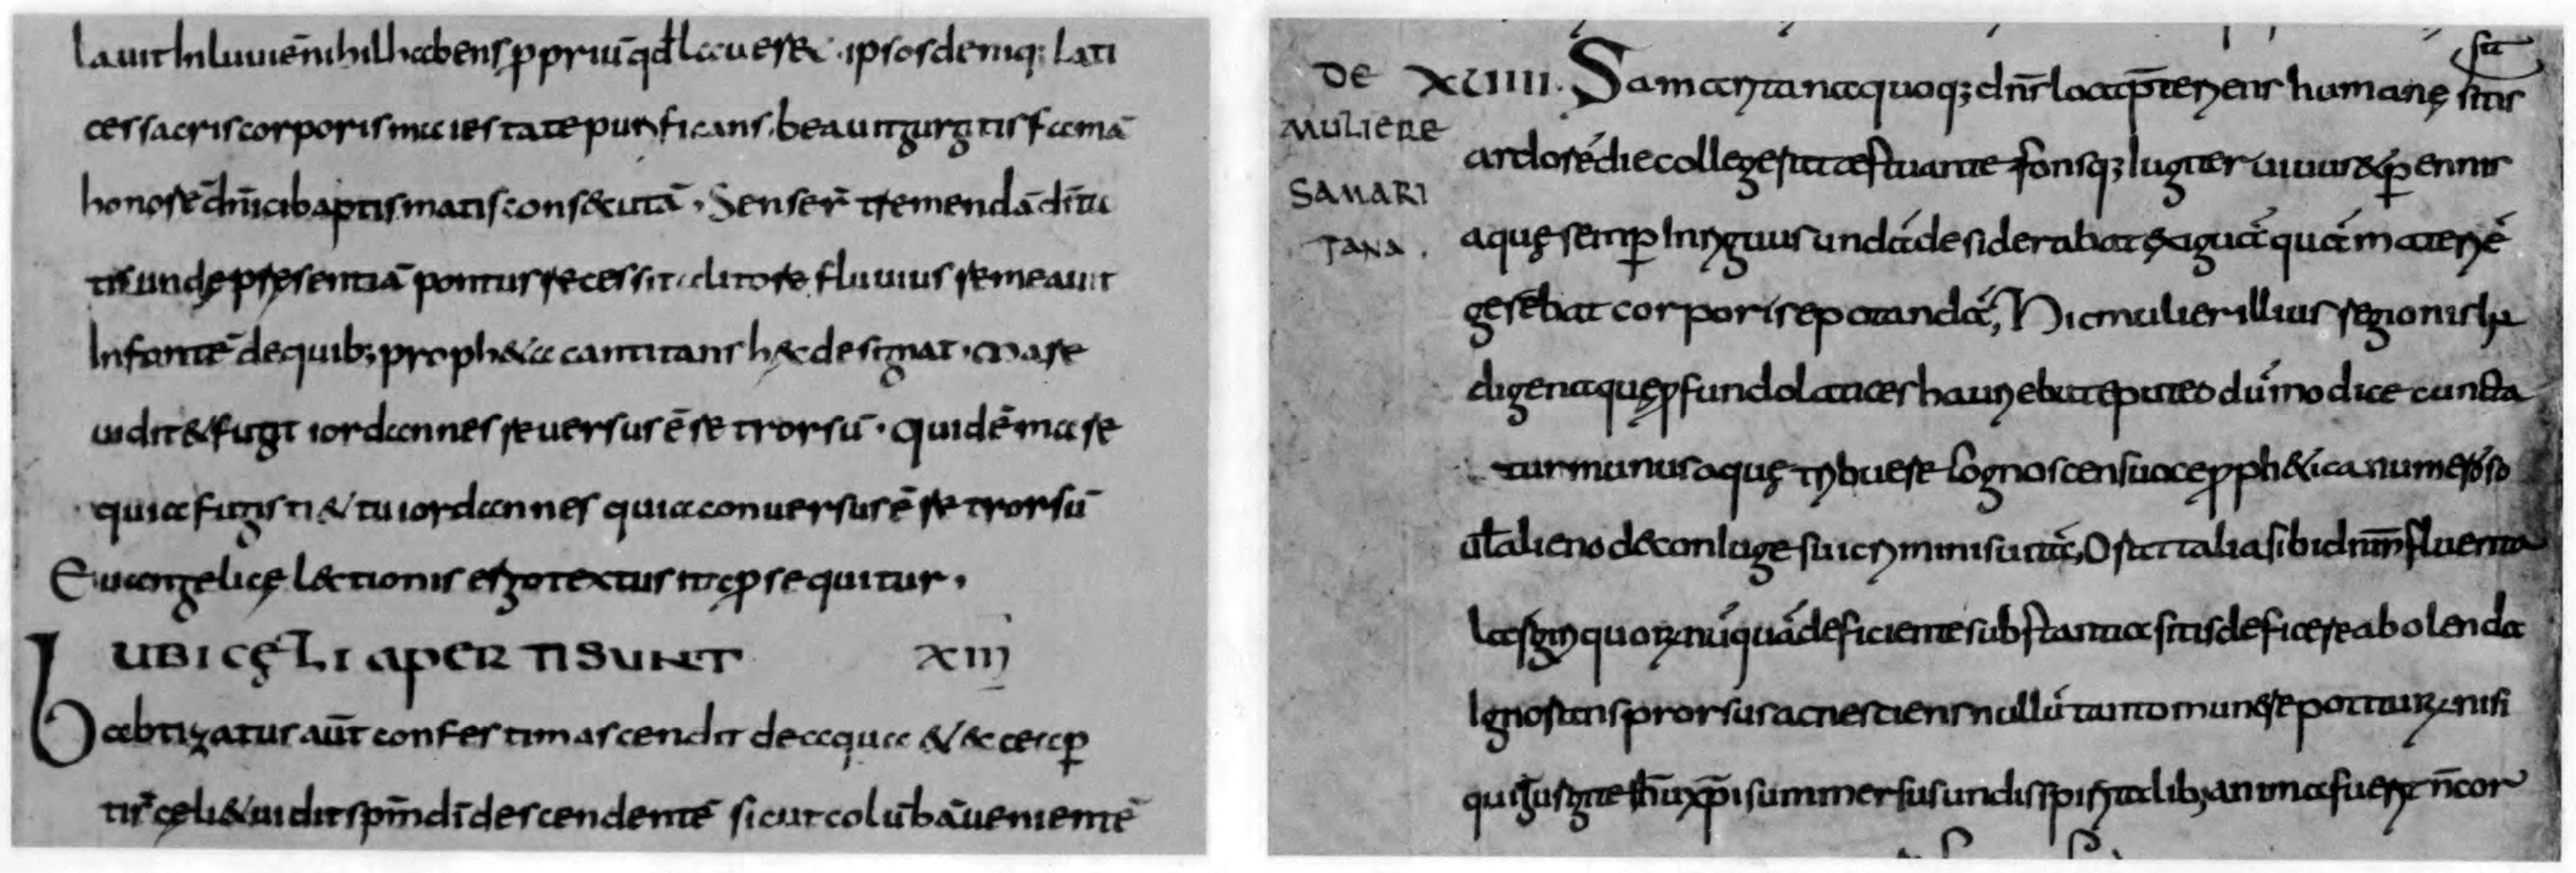 lauit In luuiē nihil habens ꝓpriū qđ laueret. ipsos demiq; lati
ces sacris corporis maiestate purificans. beauit gurgitis fœmā
honore dn̄ica baptismatis consecutā. Senser̄ tremendā diu̅i
tis unde presentiā pontus recessit aditore fluuius remeauit
Infantē de quib; prophetia cantitans hec designat. Mare
uidit & fugit iordannes reuersus ē retrorsū. Quid ē mare
quia fugisti & tu iordannes quia conuersus ē retrorsū
Euangelicę lectionis ergo textus ita ꝓsequitur.
UBI CĘLI APERTI SUNT XIIJ
Babtizatus aūt confestim ascendit de aqua & ecce aꝑ
ti sr̄ cęli & uidit spm̄ dī descendentē sicut colūbā uenientē
DE MULIERE SAMARITANA.
XUIIII. Samaritana quoq; dn̄s loca p̄teriens humanę sitis
sit
ardorē die collegerat æstuante fonsq; Iugiter uiuus & ꝑennis
aquę semꝑ Inriguus undā desiderabat exiguā quā materiē
gerebat corporis epotandā, Hic mulier illius regionis In
digena quę ꝓfundo latices hauriebat e puteo dū modice cuncta
tur munus aquę tribuere Cognoscens uoce ꝓphetica numeroso
uł alieno de coniuge sui criminis uitā, Orat talia sibi dn̄m fluenta
largiri quorum nūquā deficiente substantia sitis deficeret abolenda
Ignorans prorsus ac nesciens nullū tanto munere potiturum nisi
qui gurgite ih̄u xp̄i summersus undis spiritalib; anima fuerit n̄ cor